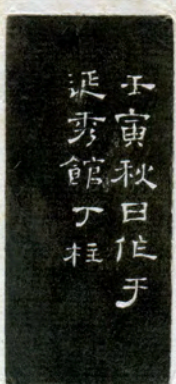 壬寅秋日作于
延秀館丁柱